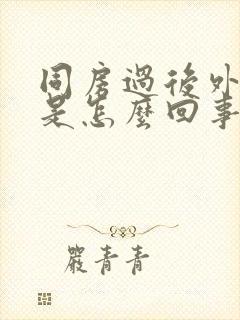 同房過後外
是怎麼回事
嚴青青